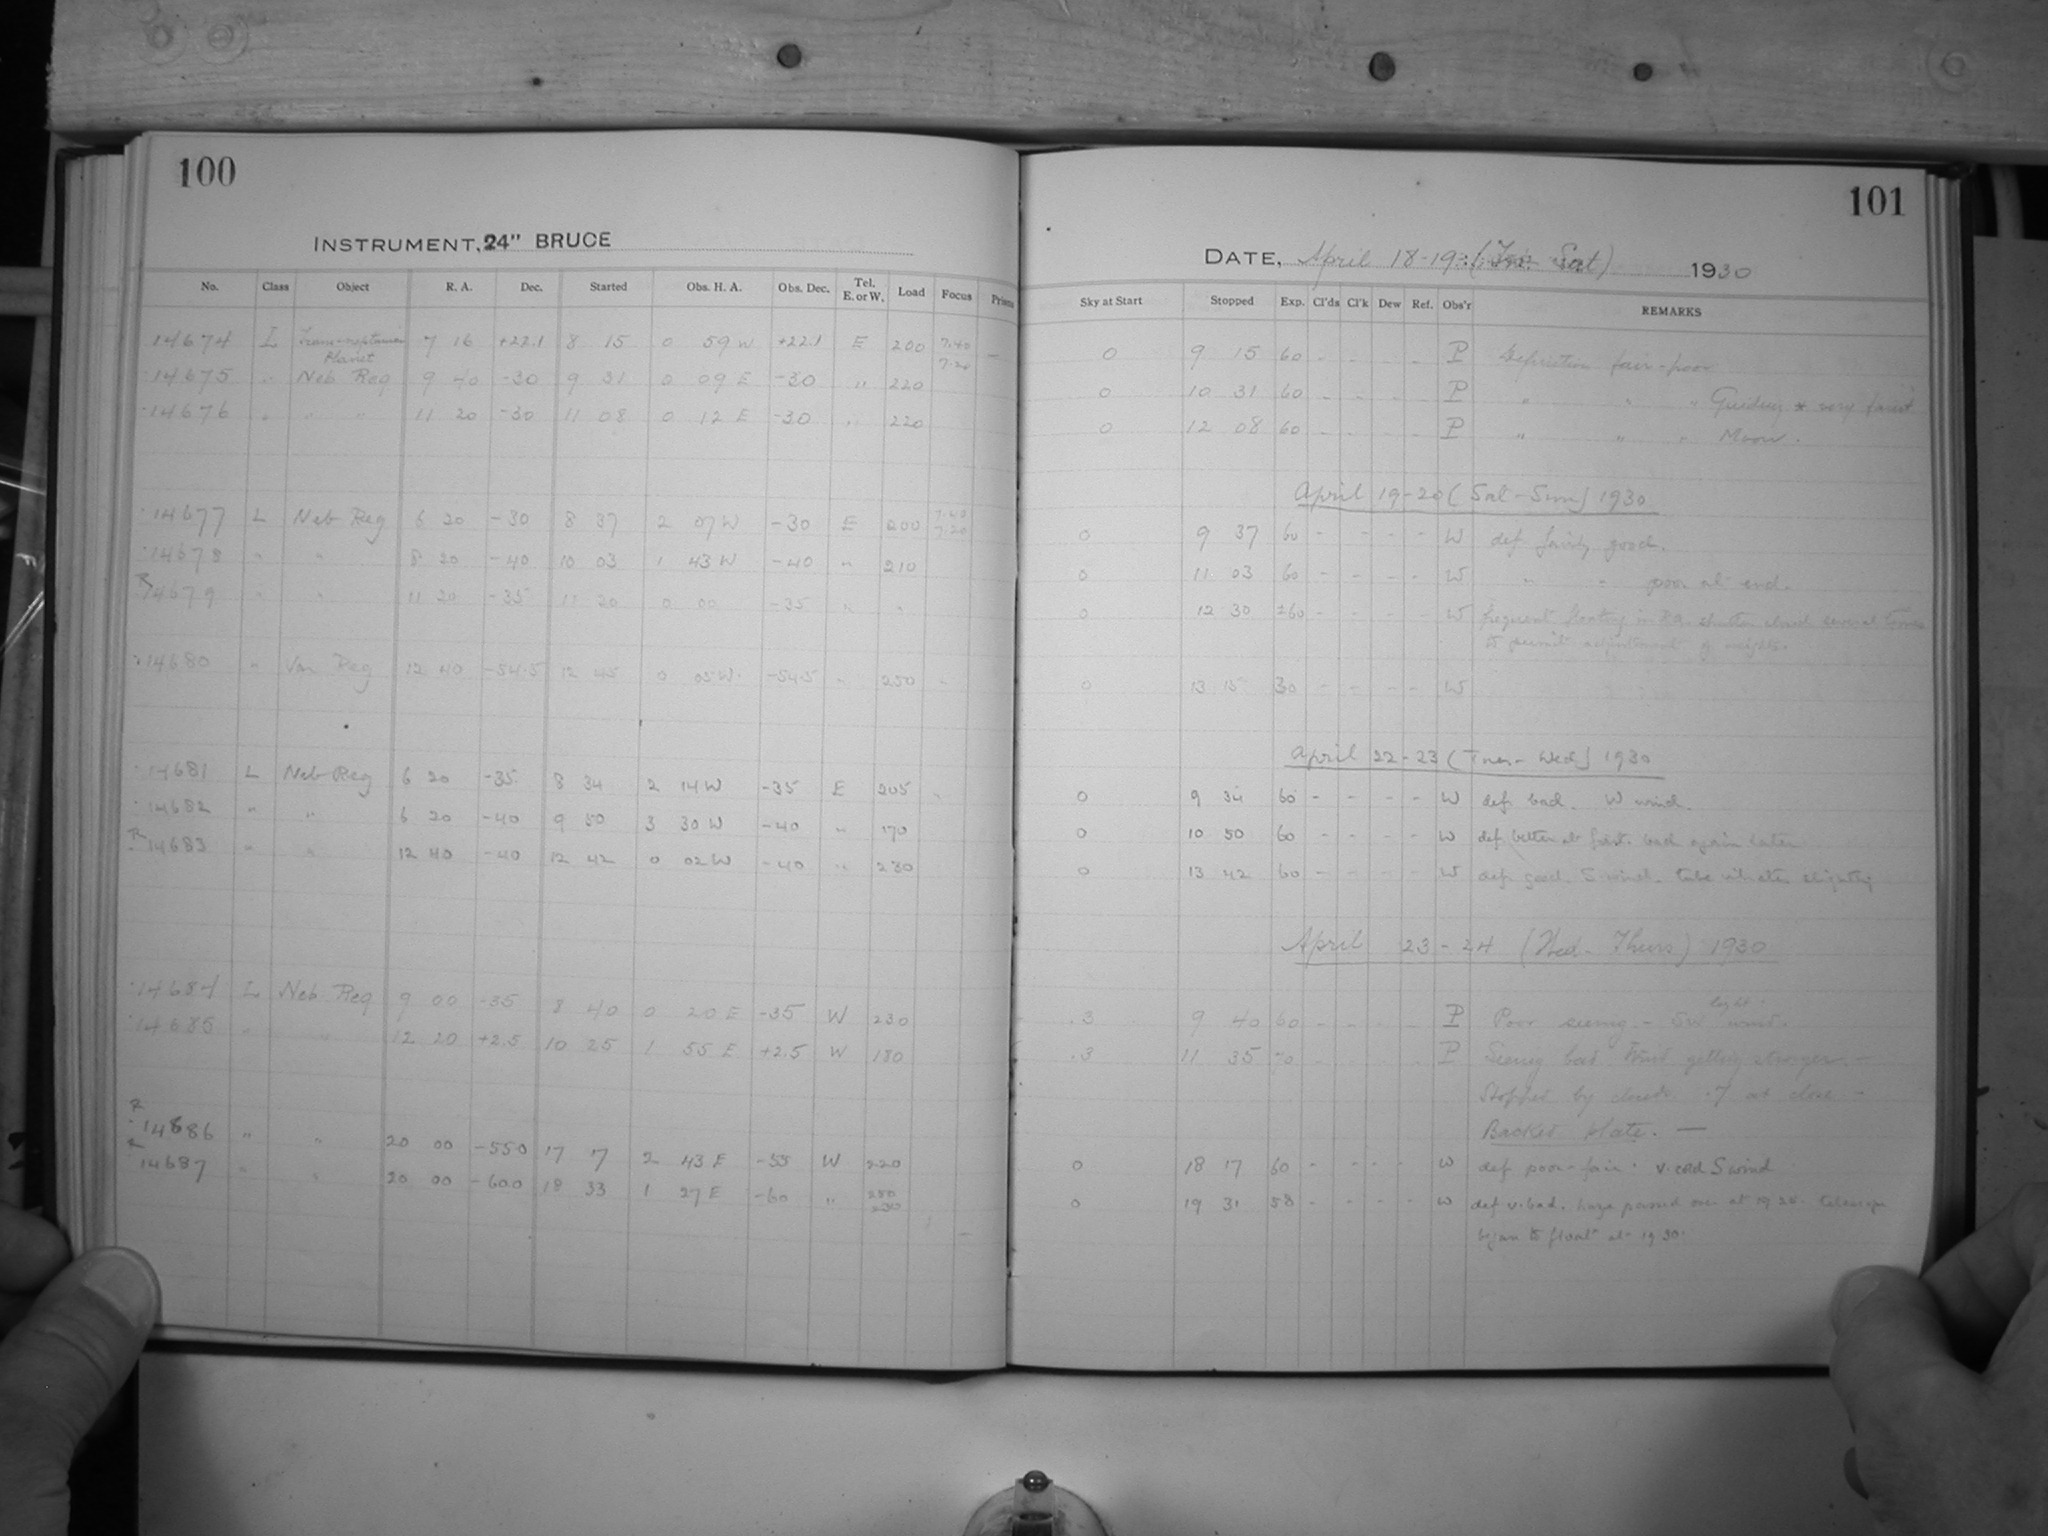 100
INSTRUMENT, 24" BRUCE
No. Class Object R. A. Dec. Started Obs. H. A. Obs. Dec. Tel. E. or W. Load Focus
14674 L Trans-neptunian Planet 7 16 +22.1 8 15 0 59 W +22.1 E 200 7.40 7.20 -
14675 " Neb Reg 9 40 -30 9 31 0 09 E -30 " 220
14676 " " " 11 20 -30 11 08 0 12 E -30 " 220
14677 L Neb Reg 6 20 -30 8 37 2 07 W -30 E 200 7.40 7.20
14678 " " 8 20 -40 10 03 1 43 W -40 " 210
14679 " " 11 20 -35 11 20 0 00 -35 " "
14680 " Var Reg 12 40 -54.5 12 45 0 05 W. -54.5 " 250 "
14681 L Neb Reg 6 20 -35 8 34 2 14 W -35 E 205 "
14682 " " 6 20 -40 9 50 3 30 W -40 " 170
R 14683 " " 12 40 -40 12 42 0 02 W -40 " 230
14684 L Neb Reg 9 00 -35 8 40 0 20 E -35 W 230
14685 " " 12 20 +2.5 10 25 1 55 E +2.5 W 180
R 14686 " " 20 00 -55.0 17 17 2 43 E -55 W 220
14687 " " 20 00 -60.0 18 33 1 27 E -60 " 250 230
101
DATE, April 18-19 (Fri. Sat) 1930
Sky at Start Stopped Exp. Cl'ds Cl'k Dew Ref. Obs'r REMARKS
0 9 15 60 - - - - P Definition fair-poor
0 10 31 60 - - - - P " " " Guiding * very faint
0 12 08 60 - - - - P " " " Moon.
April 19-20 (Sat-Sun) 1930
0 9 37 60 - - - - W def fairly good.
0 11 03 60 - - - - W " " poor at end.
0 12 30 ±60 - - - - W frequent floating in RA. shutter closed several times
to permit adjustment of weights.
0 13 15 30 - - - - W
April 22-23 (Tues-Wed) 1930
0 9 34 60 - - - - W def bad. W wind.
0 10 50 60 - - - - W def better at first. bad again later
0 13 42 60 - - - - W def good. S wind. tube vibrates slightly
April 23-24 (Wed-Thurs) 1930
.3 9 40 60 - - - - P Poor seeing - SW light wind.
.3 11 35 70 - - - - P Seeing bad. Wind getting stronger. -
Stopped by clouds .7 at close -
Backed plate. -
0 18 17 60 - - - - W def poor-fair. v. cold S wind
0 19 31 58 - - - - W def v. bad. haze passed over at 19 25. telescope
began to float at 19 30.